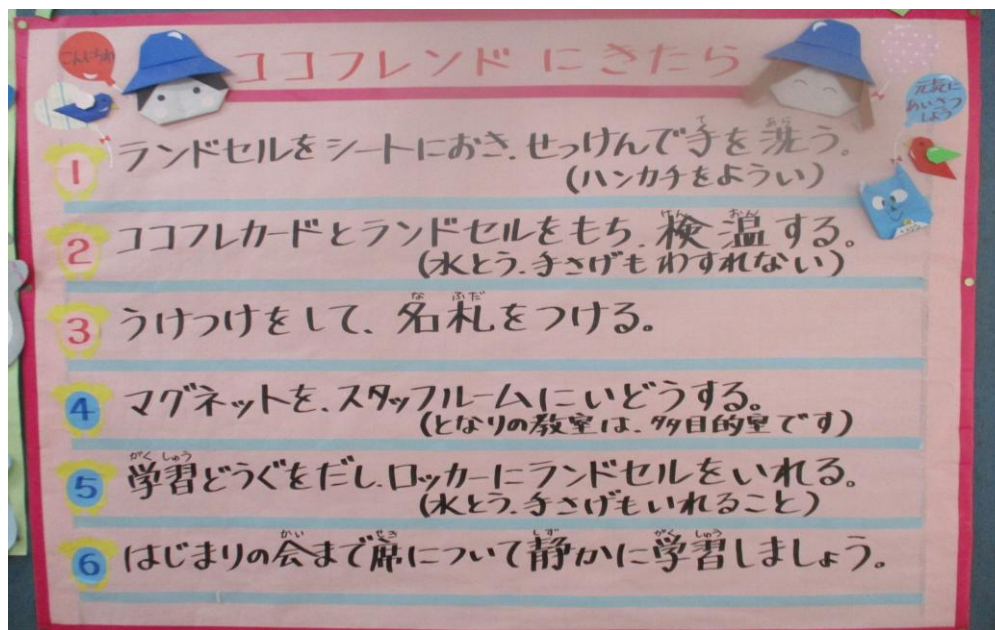 ココフレンドにきたら
こんにちわ
元気に
あいさつ
しよう
1 ランドセルをシートにおき、せっけんで手を洗う。
(ハンカチをようい)
2 ココフレカードとランドセルをもち、検温する。
(水とう、手さげもわすれない)
3 うけつけをして、名札をつける。
4 マグネットを、スタッフルームにいどうする。
(となりの教室は、多目的室です)
5 学習どうぐをだし、ロッカーにランドセルをいれる。
(水とう、手さげもいれること)
6 はじまりの会まで席について静かに学習しましょう。